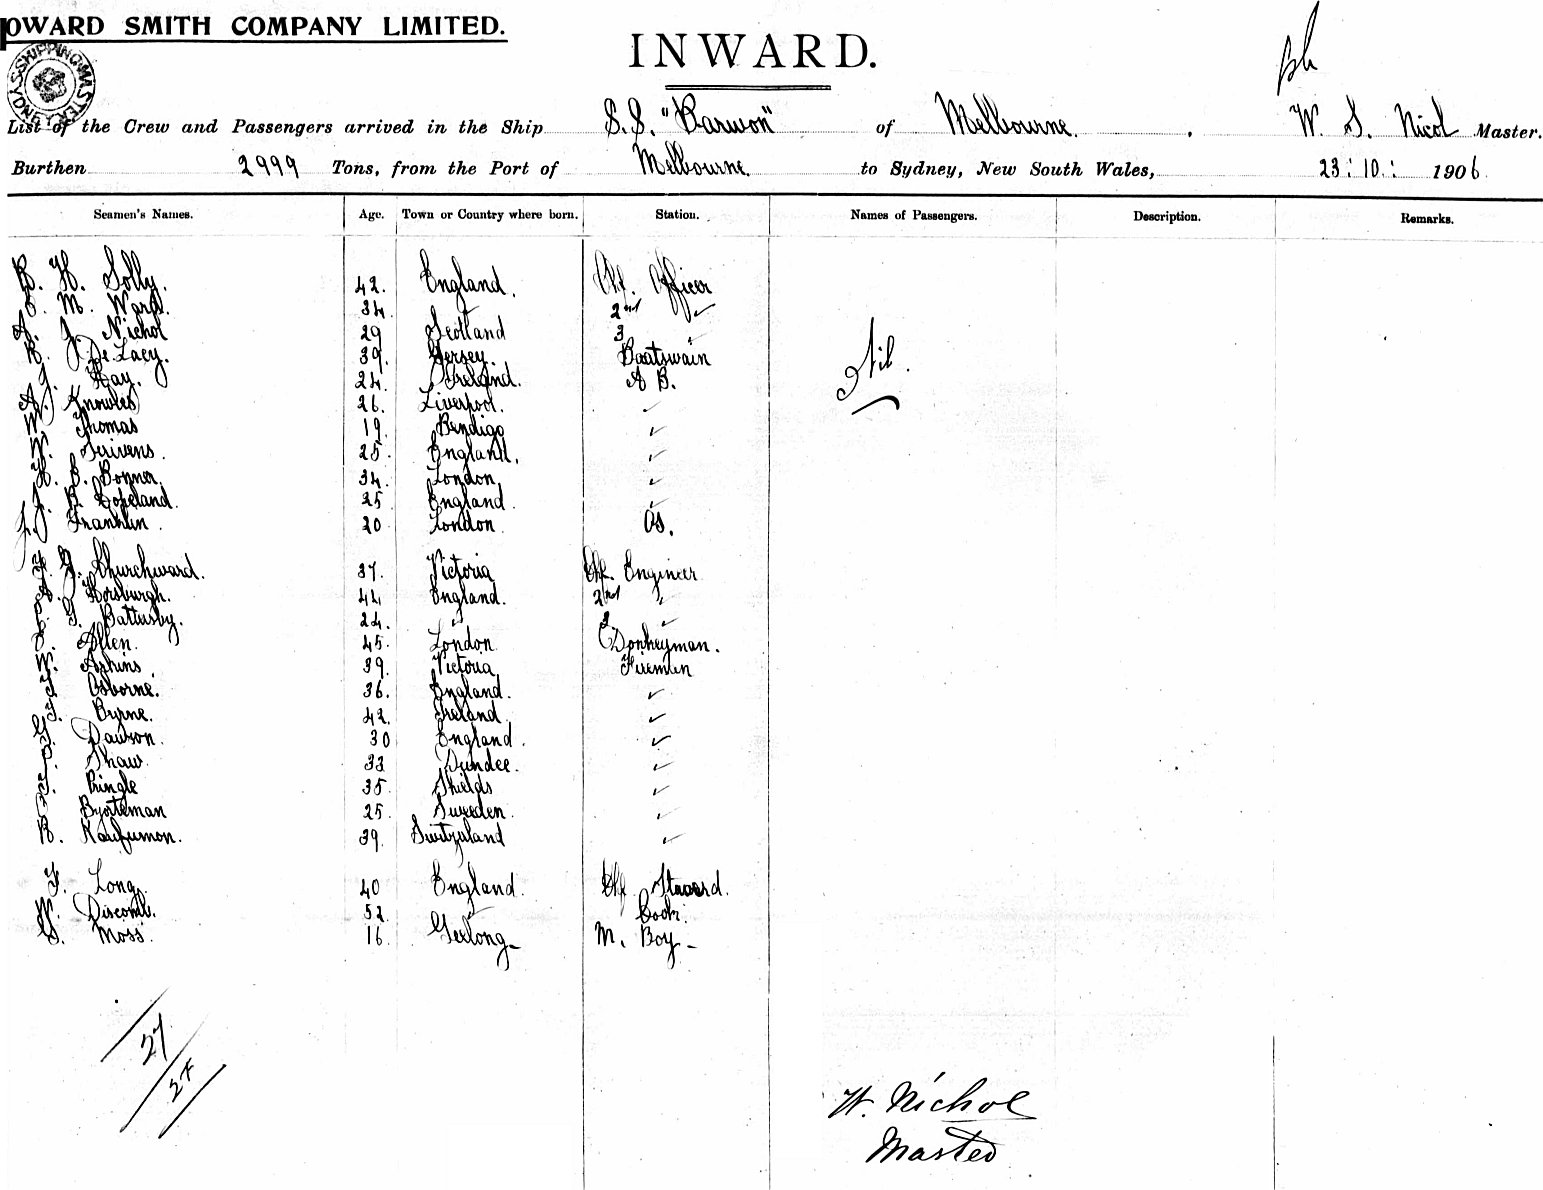 OWARD SMITH COMPANY LIMITED.
INWARD.
SHIPPING MASTER SYDNEY
List of the Crew and Passengers arrived in the Ship S.S. "Barwon" of Melbourne. W. S. Nicol Master.
Burthen 2999 Tons, from the Port of Melbourne to Sydney, New South Wales, 23:10: 1906
Seamen's Names. Age. Town or Country where born. Station. Names of Passengers. Description. Remarks.
H. Solly. 42. England. Chf. Officer
M. Ward. 34. " 2nd "
J. Nichol 29 Scotland 3 "
De Lacy. 39. Jersey. Boatswain
J. Hay. 24. Ireland. A B.
Nil.
A. Knowles 26. Liverpool. "
W. Thomas 19. Bendigo "
W. Scrivens. 25. England. "
H. B. Bonner. 34. London "
J. B. Copeland. 25 England "
J. Franklin. 20 London OS.
Churchward. 37. Victoria Chf. Engineer
Horsburgh. 44 England. 2nd "
G. Battersby. 24. " 3 "
Allen. 45. London Donkeyman.
W. Askins 39. Victoria Firemen
Osborne. 36. England. "
Byrne. 42. Ireland "
G. Dawson. 30 England. "
Shaw. 33 Dundee. "
Pringle 35. Shields "
Bysteman 25. Sweden. "
B. Kaufumon. 39. Switzaland "
F. Long. 40 England. Chf Steward.
W. Discomb. 52. " Cook.
G. Moss. 16. Geelong M. Boy
27
27
W. Nichol
Master